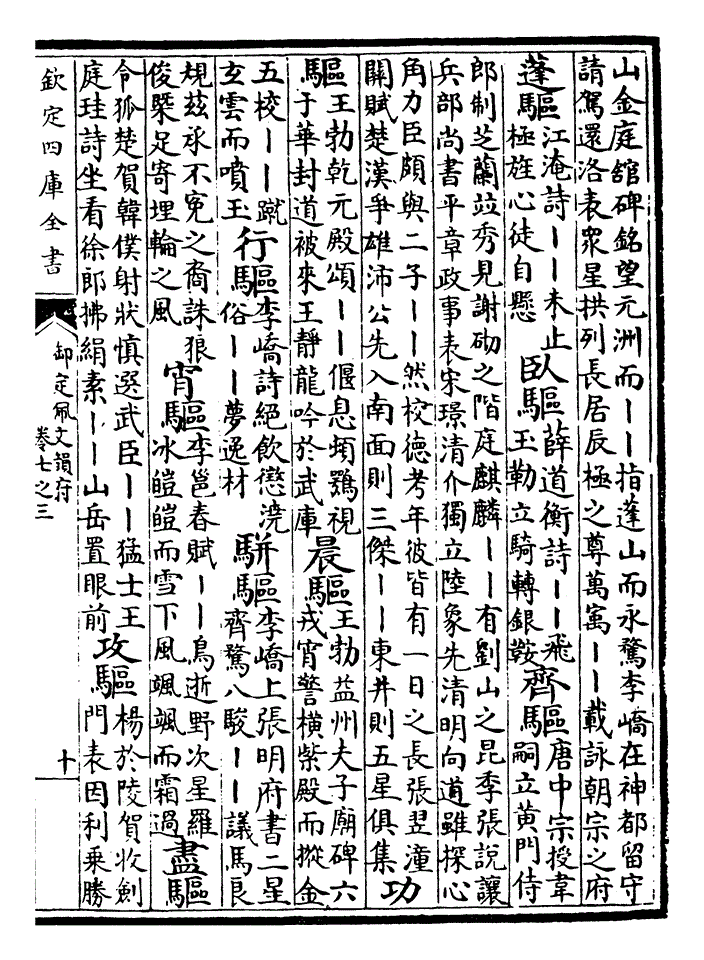 山金庭舘碑銘望元洲而丨丨指蓬山而永騖李嶠在神都留守
請駕還洛表衆星拱列長居辰極之尊萬㝢丨丨載詠朝宗之府
蓬驅
江淹詩丨丨未止
極旌心徒自懸
臥驅
薛道衡詩丨丨飛
玉勒立騎轉銀鞍
齊驅
唐中宗授韋
嗣立黄門侍
郎制芝蘭竝秀見謝砌之階庭麒麟丨丨有劉山之昆季張説讓
兵部尚書平章政事表宋璟清介獨立陸象先清明向道雖探心
角力臣頗與二子丨丨然校德考年彼皆有一日之長張翌潼
關賦楚漢爭雄沛公先入南面則三傑丨丨東井則五星俱集
功
驅
王勃乾元殿頌丨丨偃息頓鶚視
于華封道被來王靜龍吟於武庫
晨驅
王勃益州夫子廟碑六
戎宵警横紫殿而摐金
五校丨丨蹴
玄雲而噴玉
行驅
李嶠詩絕飲懲澆
俗丨丨夢逸材
駢驅
李嶠上張明府書二星
齊驚八駿丨丨議馬良
規兹承不寃之裔誅狼
俊槩足寄埋輪之風
宵驅
李邕春賦丨丨鳥逝野次星羅
冰皚皚而雪下風颯颯而霜過
盡驅
令狐楚賀韓僕射狀慎選武臣丨丨猛士王
庭珪詩坐看徐郎拂絹素丨丨山岳置眼前
攻驅
楊於陵賀收劍
門表因利乘勝
欽定四庫全書
御定佩文韻府
卷七之三
十